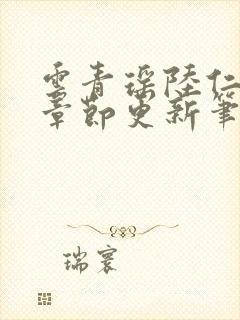 云青瑶陆仁
章节更新笔
瑞寰